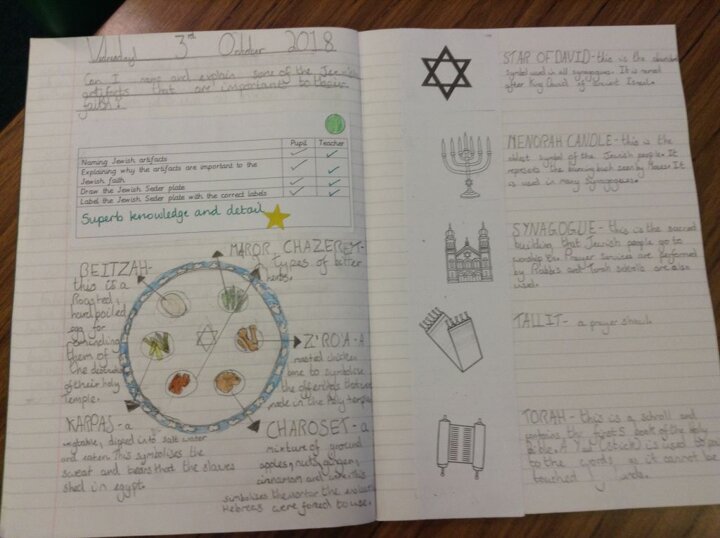 3rd October 2018
Can I name and explain some of the Jewish
artifacts that are important to
faith?
Pupil Teacher
Naming Jewish artifacts
Explaining why the artifacts are important to the
Jewish faith
Draw the Jewish Seder plate
Label the Jewish Seder plate with the correct labels
Superb knowledge and detail
BEITZAH-
this is a
Roasted,
hard boiled
egg for
them of
the
of their holy
Temple.
MAROR CHAZEREM-
types of bitter
herbs.
Z'RO'A - A
roasted chicken
to symbolise
the
made in the Holy
KARPAS - a
vegetable, dipped into salt water
and eaten. This symbolises the
sweat and tears that the slaves
shed in egypt.
CHAROSET - a
mixture of ground
apples, nuts, ginger,
cinnamon and wine. This
symbolises the mortar the
Hebrews were forced to use.
STAR OF DAVID - this is the
symbol used in all synagogues. It is named
after King David of ancient Israel.
MENORAH CANDLE - this is the
oldest symbol of the Jewish people. It
represents the burning bush seen by Moses. It
is used in many Synagogues.
SYNAGOGUE - this is the sacred
building that Jewish people go to
worship in. Prayer services are performed
by Rabbis and Torah scrolls are also
used.
TALLIT - a prayer shawl.
TORAH - this is a scroll and
contains the first 5 book of the holy
bible. A (stick) is used to
to the words, as it cannot be
touched by hands.